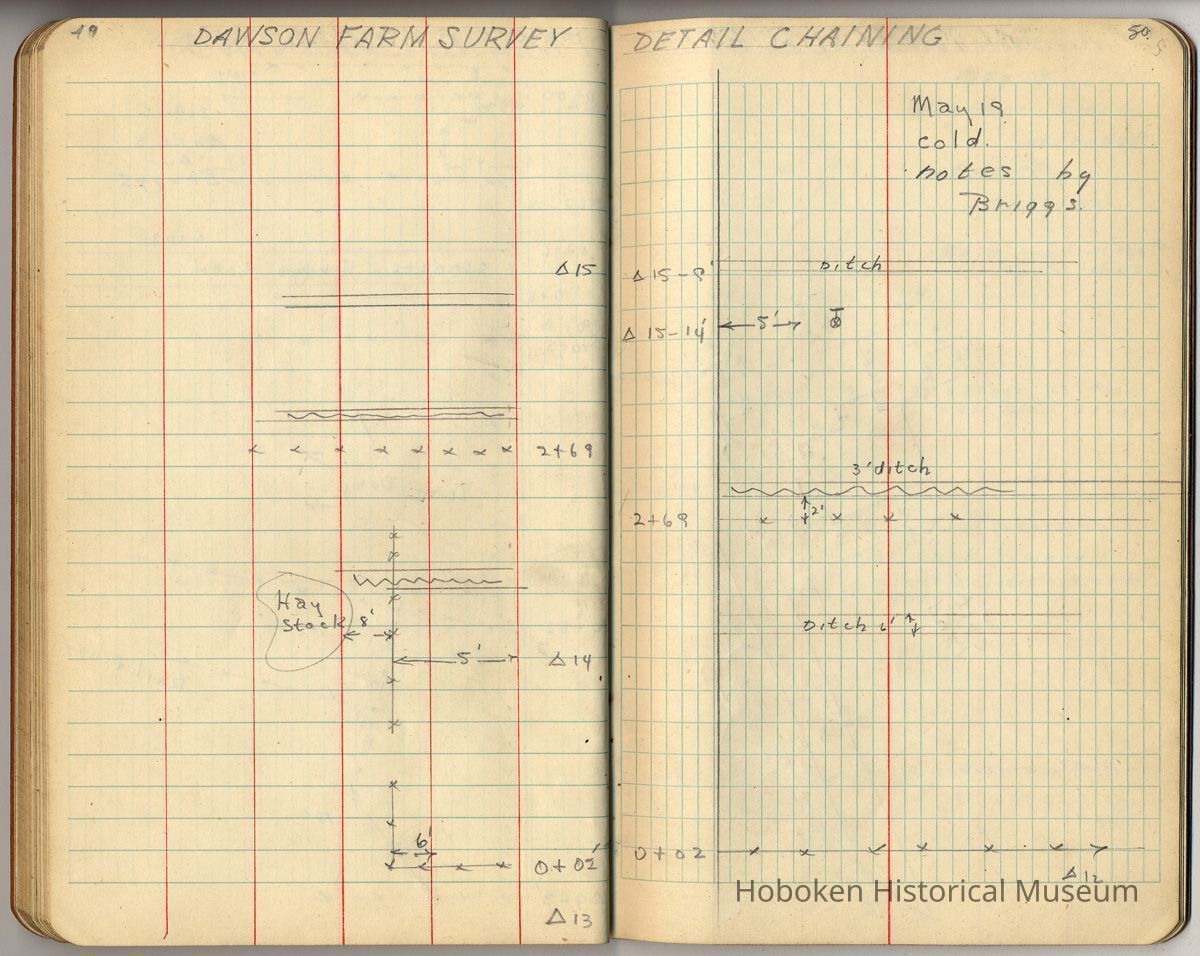 49
DAWSON FARM SURVEY
Δ 15
2+69
Hay
Stack 8'
5' Δ 14
6'
0+02'
Δ 13
DETAIL CHAINING
50.
May 19
cold.
notes by
Briggs.
Ditch
Δ 15-14' 5'
3' ditch
2+69 2'
Ditch 6'
0+02
Δ 12
Hoboken Historical Museum